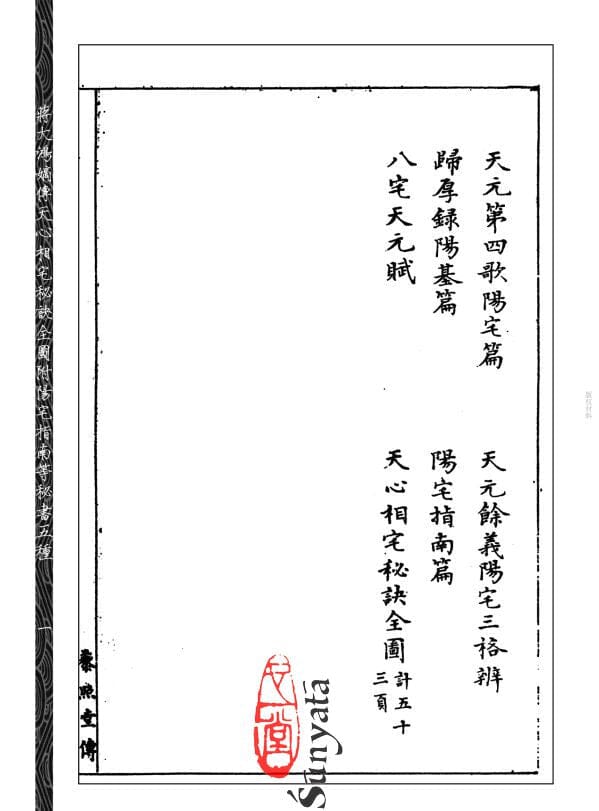 天元第四歌陽宅篇
天元餘義陽宅三格辨
歸厚録陽基篇
陽宅指南篇
八宅天元賦
天心相宅秘訣全圖
計五十
三頁
照堂傳
蔣大鴻嫡傳天心相宅秘訣全圖附陽宅指南等秘書五種
一
心一堂
Śūnyatā
版权材料